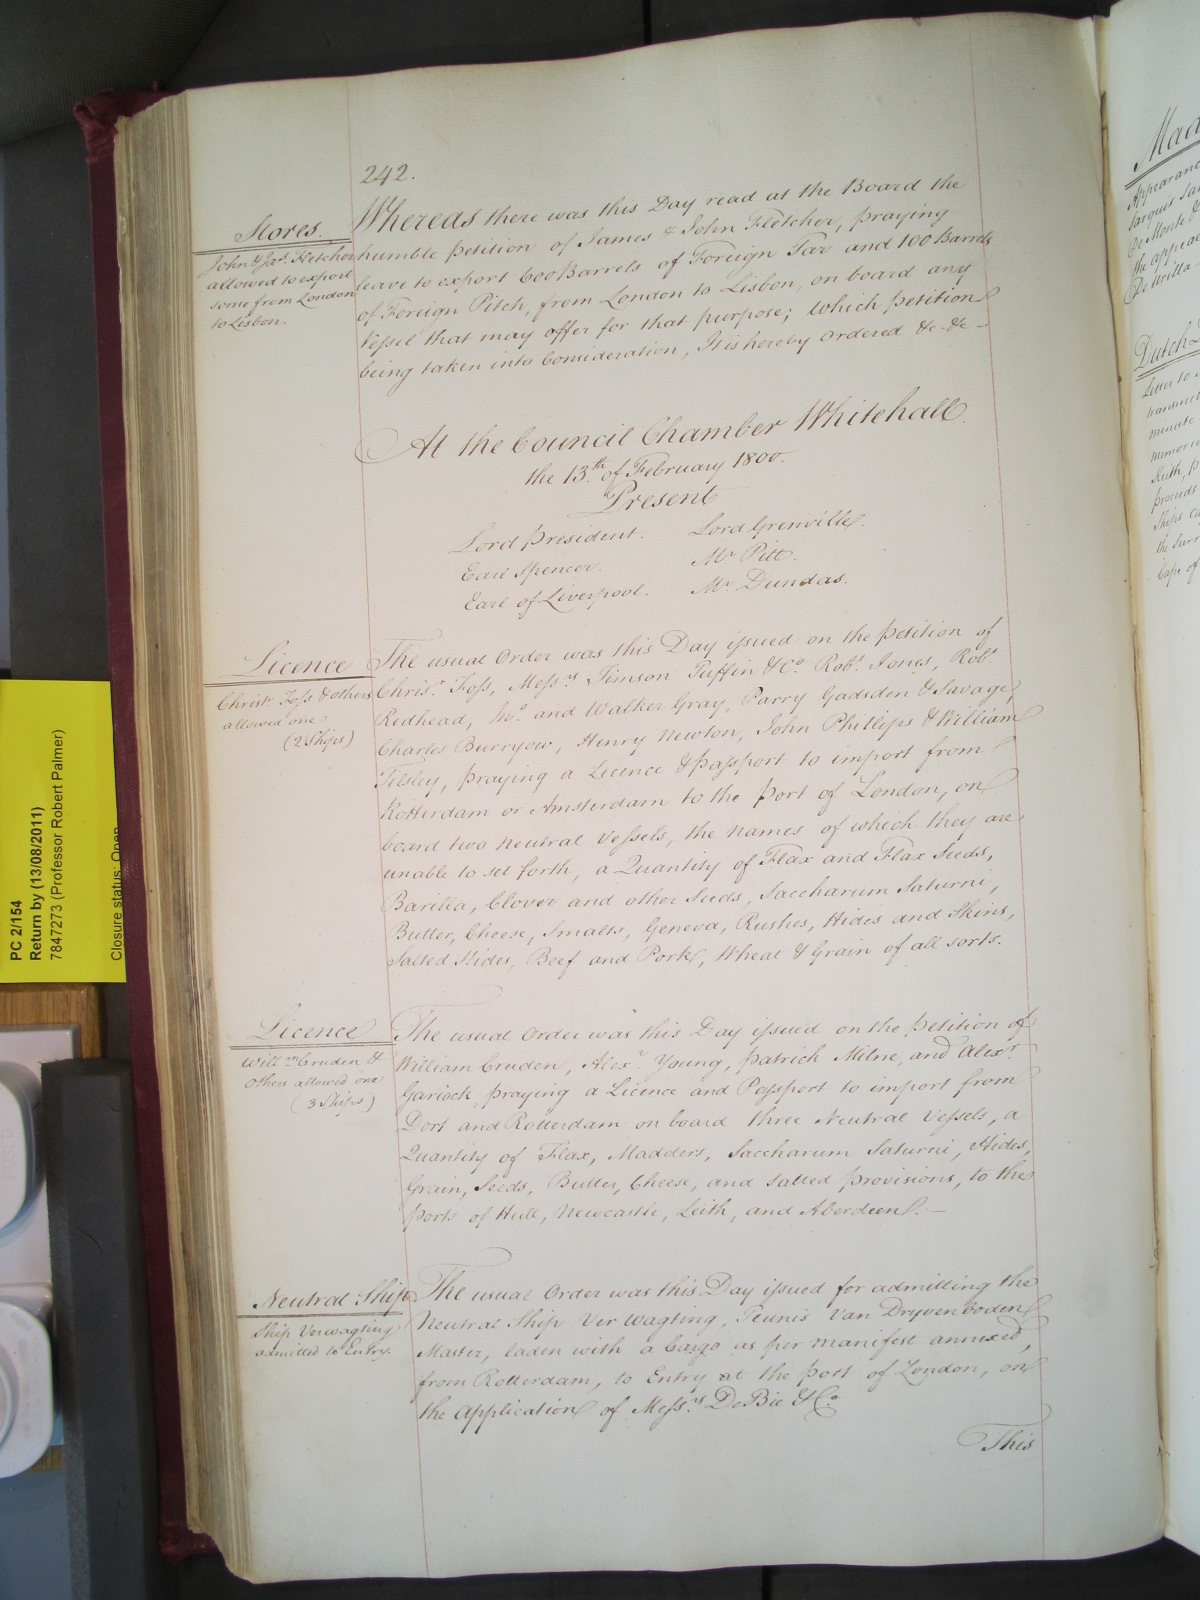 242.
Stores.
John & Jas. Fletcher
allowed to export
some from London
to Lisbon.
Whereas there was this Day read at the Board the
humble petition of James & John Fletcher, praying
leave to export 600 Barrels of Foreign Tar and 100 Barrels
of Foreign Pitch, from London to Lisbon, on board any
Vessel that may offer for that purpose; which petition
being taken into Consideration, It is hereby Ordered &c. &c.
At the Council Chamber Whitehall
the 13th. of February 1800.
Present
Lord President. Lord Grenville.
Earl Spencer. Mr. Pitt.
Earl of Liverpool. Mr. Dundas.
Licence
Christr. Foss & others
allowed one
(2 Ships)
The usual Order was this Day issued on the petition of
Chrisr. Foss, Messrs. Timson Puffin & Co. Robt. Jones, Robt.
Redhead, Jno. and Walker Gray, Parry Gadsden & Savage,
Charles Burryow, Henry Newton, John Phillips & William
Tilsley, praying a Licence & passport to import from
Rotterdam or Amsterdam to the port of London, on
board two Neutral Vessels, the names of which they are
unable to set forth, a Quantity of Flax and Flax Seeds,
Barilla, Clover and other Seeds, Saccharum Saturni,
Butter, Cheese, Smalts, Geneva, Rushes, Hides and Skins,
Salted Hides, Beef and Pork, Wheat & Grain of all sorts.
Licence
Willm. Cruden &
others allowed one
(3 Ships)
The usual Order was this Day issued on the petition of
William Cruden, Alexr. Young, patrick Milne, and Alexr.
Gariock, praying a Licence and Passport to import from
Dort and Rotterdam on board three Neutral Vessels, a
Quantity of Flax, Madders, Saccharum Saturni, Hides,
Grain, Seeds, Butter, Cheese, and salted provisions, to the
ports of Hull, Newcastle, Leith, and Aberdeen.
Neutral Ship
Ship Verwagting
admitted to Entry.
The usual Order was this Day issued for admitting the
Neutral Ship Ver Wagting, Teunis Van Dryven Boden
Master, laden with a Cargo as per manifest annexed,
from Rotterdam, to Entry at the port of London, on
the Application of Messrs. De Bie & Co.
This
PC 2/154
Return by (13/08/2011)
7847273 (Professor Robert Palmer)
Closure status: Open
Appearan
the appea
Dutch
Letter to
transmit
minute
proceeds
Ships
Cape of